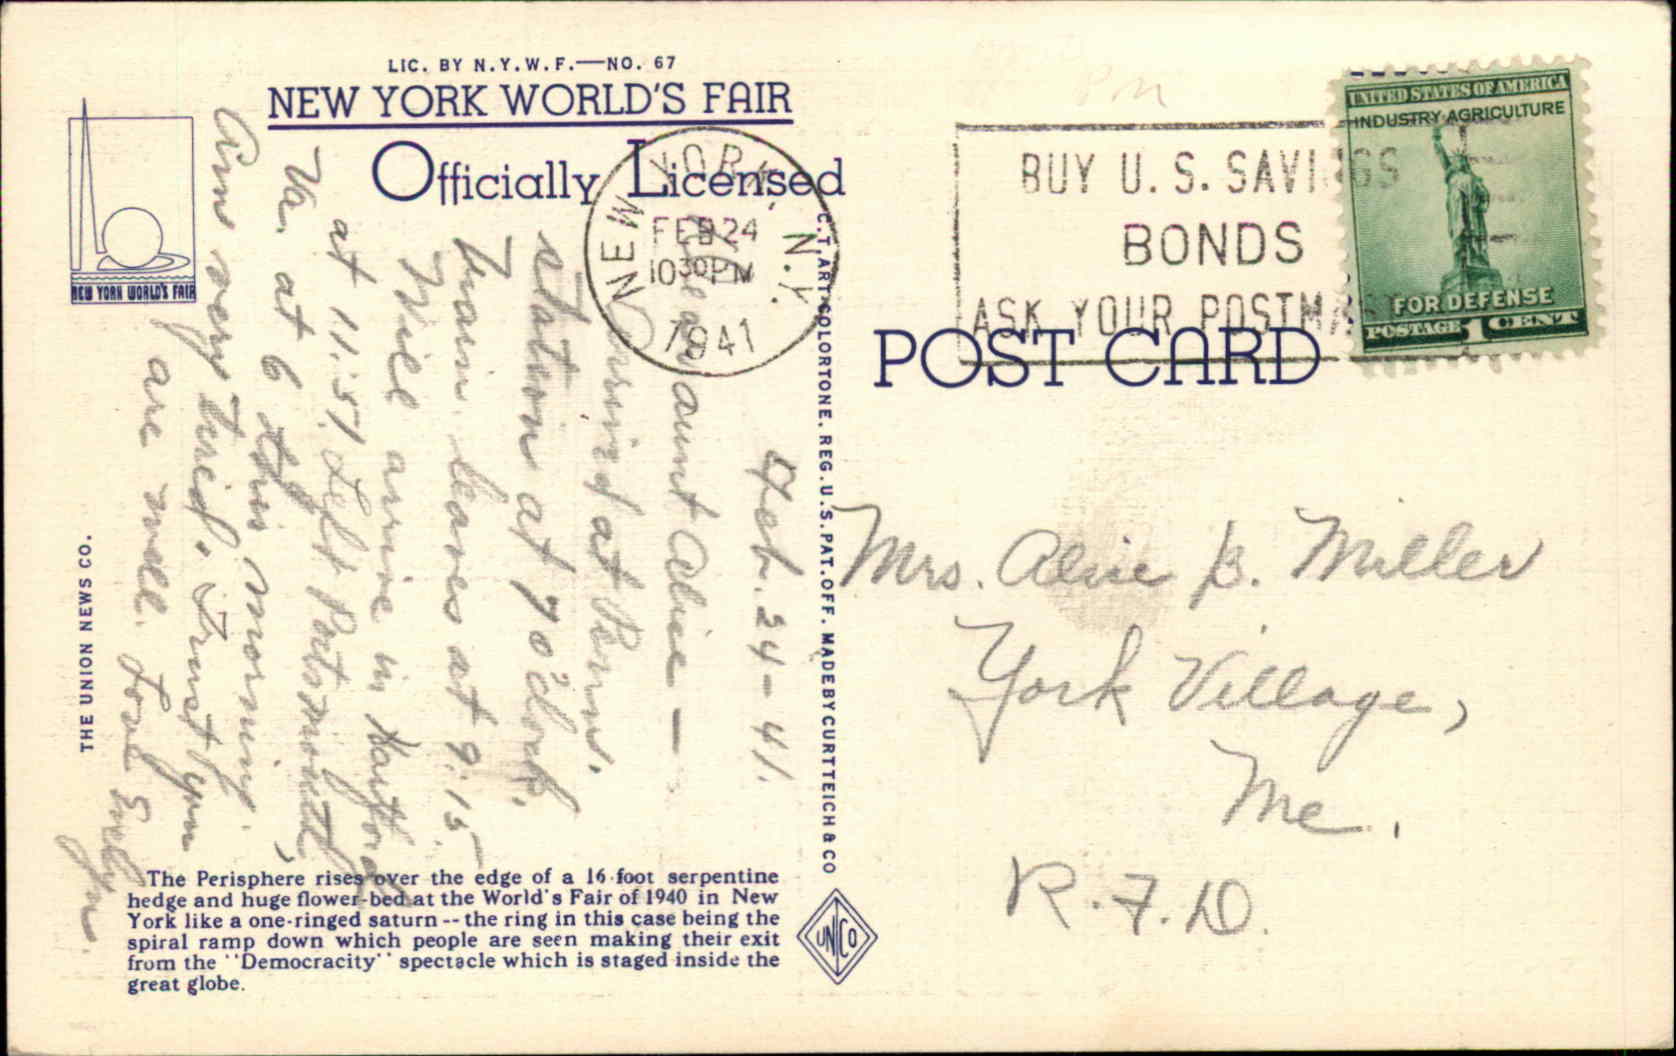 LIC. BY N.Y.W.F.—NO. 67
NEW YORK WORLD'S FAIR
Officially Licensed
NEW YORK WORLD'S FAIR
THE UNION NEWS CO.
Feb. 24-41.
Dear aunt Alice —
Arrived at Penn.
station at 7 o'clock.
Train leaves at 9:15
Will arrive in Hartford
at 11:57. Left Portsmouth,
Va. at 6 this morning.
Am very tired. Trust you
are well. Love Evelyn.
The Perisphere rises over the edge of a 16-foot serpentine
hedge and huge flower-bed at the World's Fair of 1940 in New
York like a one-ringed saturn -- the ring in this case being the
spiral ramp down which people are seen making their exit
from the "Democracity" spectacle which is staged inside the
great globe.
C.T. ART COLORTONE. REG. U.S. PAT. OFF. MADE BY CURT TEICH & CO
UNCO
NEW YORK, N.Y.
FEB 24
10 30 PM
1941
BUY U.S. SAVINGS
BONDS
ASK YOUR POSTMA
UNITED STATES OF AMERICA
INDUSTRY AGRICULTURE
FOR DEFENSE
POSTAGE 1 CENT
POST CARD
Mrs. Alice B. Miller
York Village,
Me.
R.F.D.